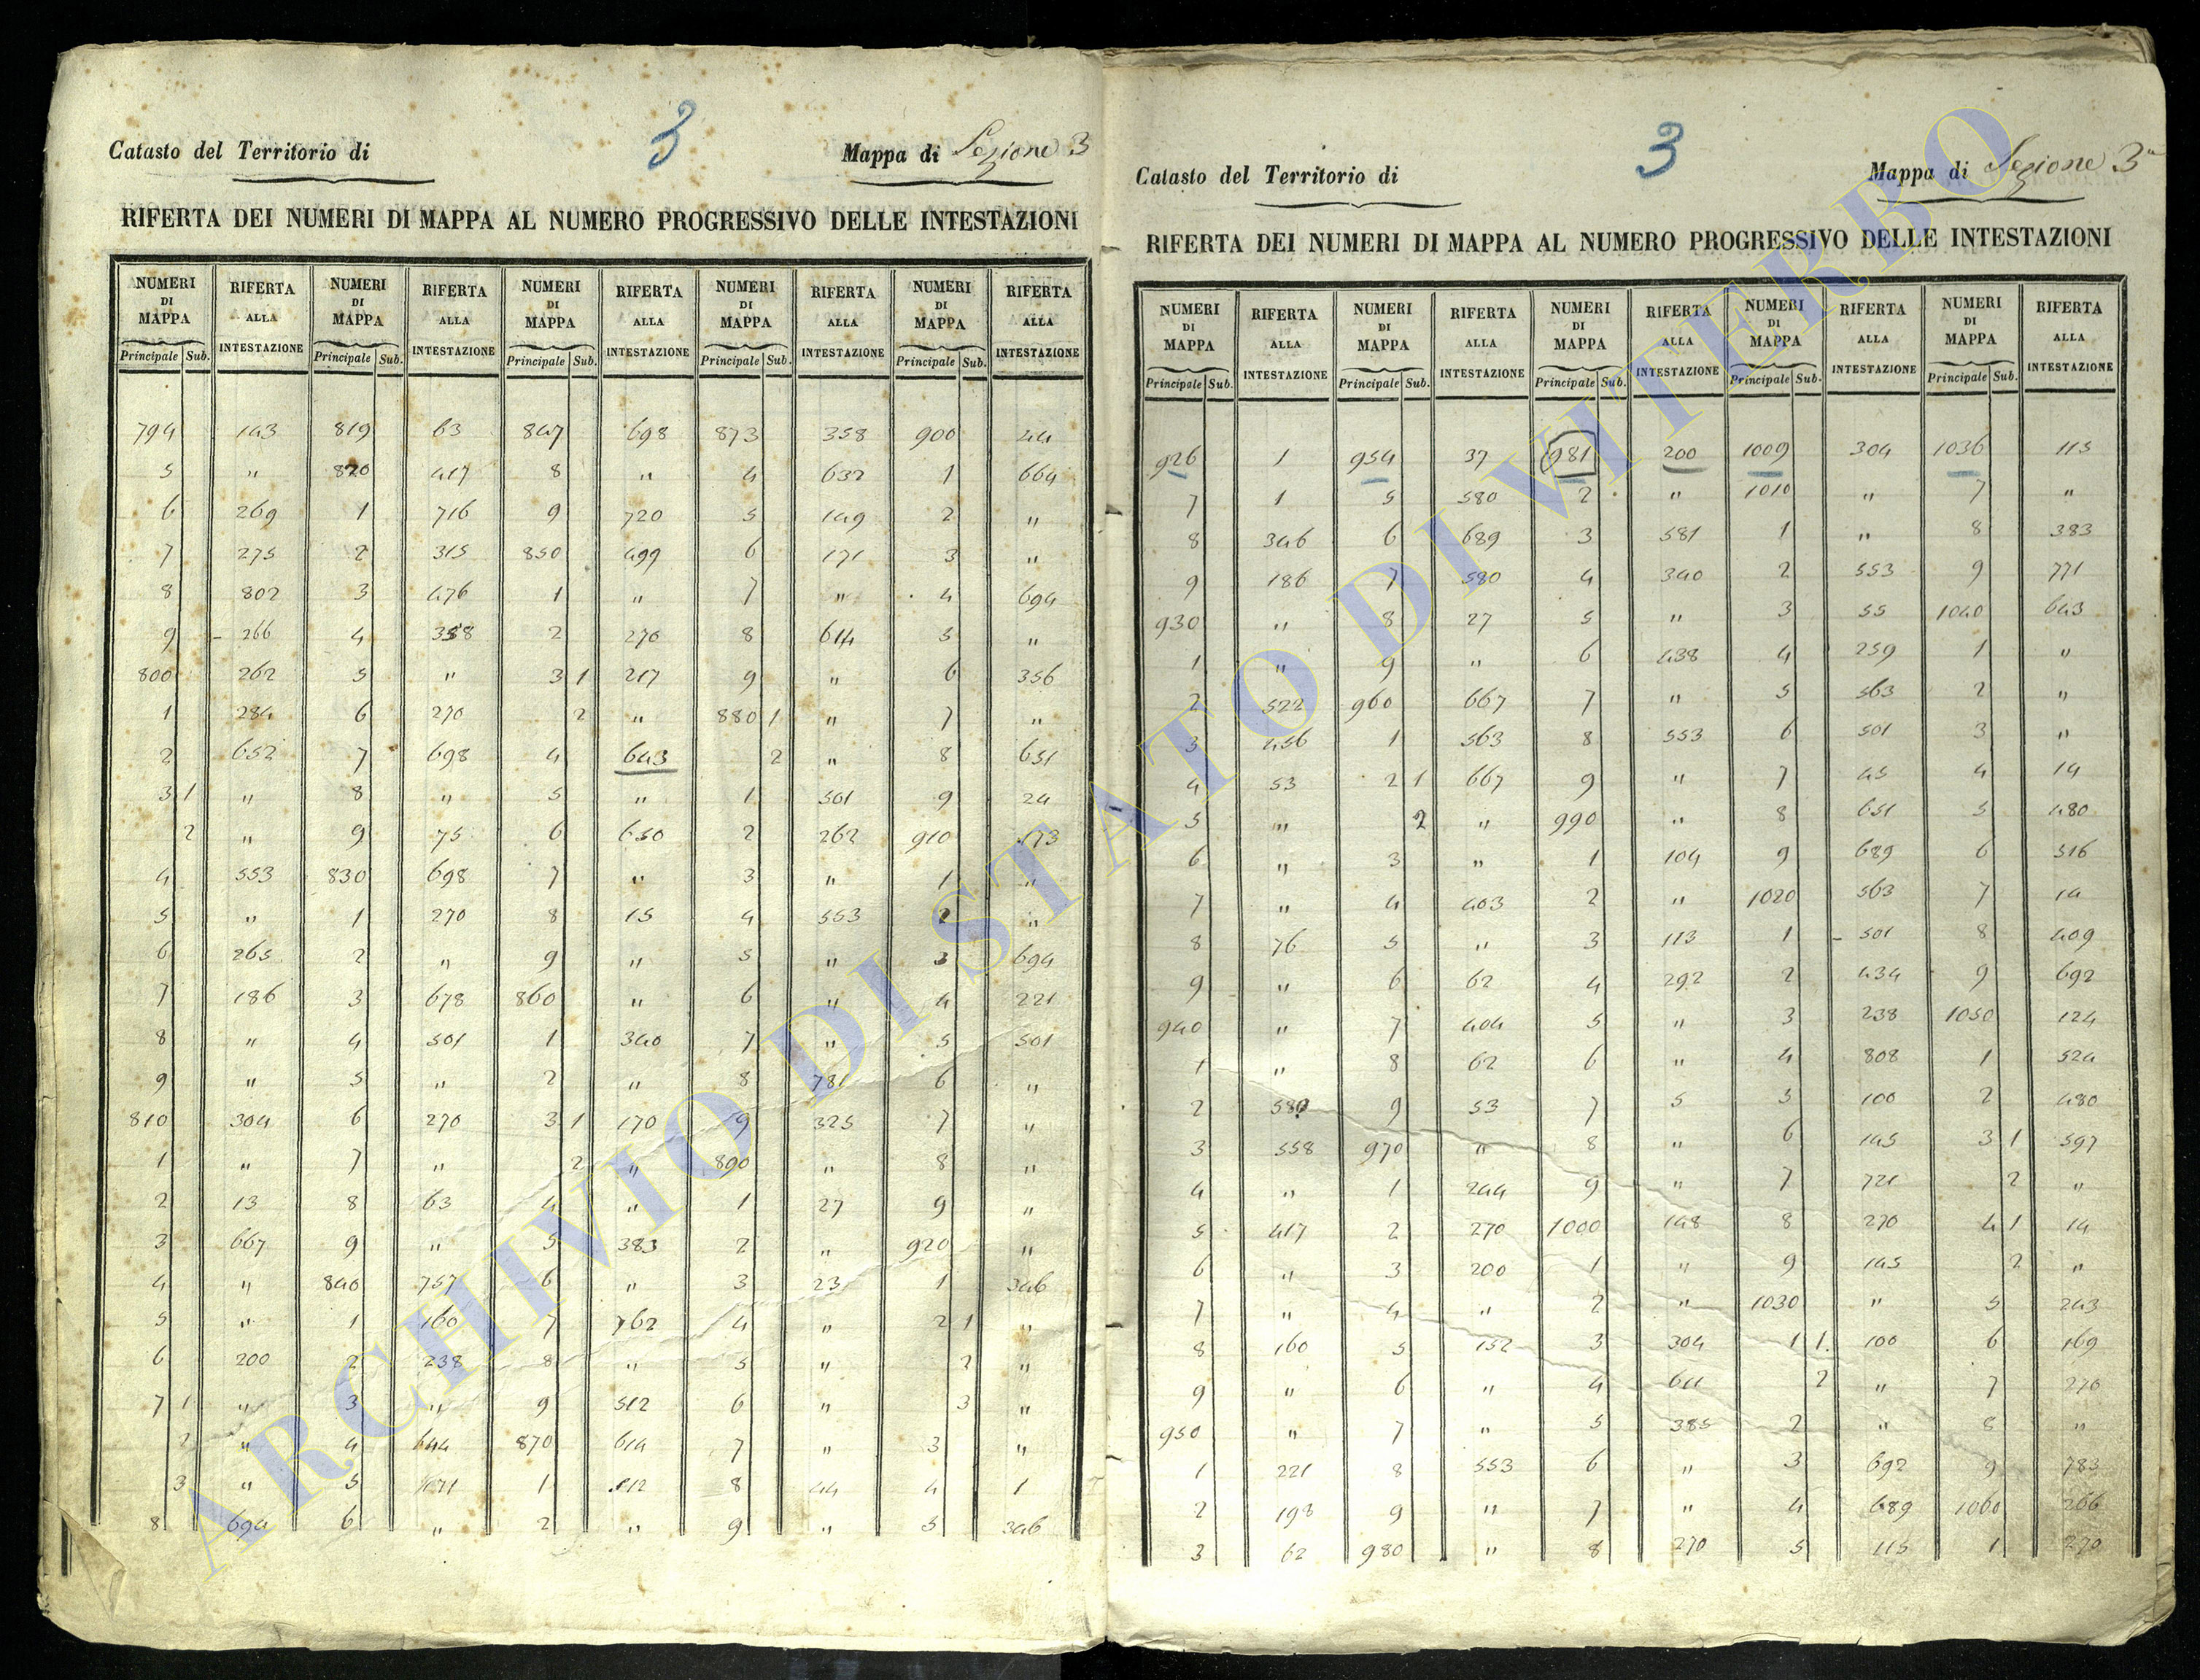 Catasto del Territorio di
3
Mappa di Sezione 3
RIFERTA DEI NUMERI DI MAPPA AL NUMERO PROGRESSIVO DELLE INTESTAZIONI
NUMERI DI MAPPA RIFERTA ALLA INTESTAZIONE NUMERI DI MAPPA RIFERTA ALLA INTESTAZIONE NUMERI DI MAPPA RIFERTA ALLA INTESTAZIONE NUMERI DI MAPPA RIFERTA ALLA INTESTAZIONE NUMERI DI MAPPA RIFERTA ALLA INTESTAZIONE
Principale Sub. Principale Sub. Principale Sub. Principale Sub. Principale Sub.
794 143 819 63 847 698 873 358 900 44
5 " 820 417 8 " 4 632 1 664
6 269 1 716 9 720 5 149 2 "
7 275 2 315 850 499 6 171 3 "
8 802 3 476 1 " 7 " 4 694
9 266 4 358 2 270 8 614 5 "
800 262 5 " 3 1 217 9 " 6 356
1 284 6 270 2 " 880 1 " 7 "
2 652 7 698 4 643 2 " 8 651
3 1 " 8 " 5 " 1 501 9 24
2 " 9 75 6 650 2 262 910 173
4 553 830 698 7 " 3 " 1 "
5 " 1 270 8 15 4 553 2 "
6 265 2 " 9 " 5 " 3 694
7 186 3 678 860 " 6 " 4 221
8 " 4 501 1 340 7 " 5 501
9 " 5 " 2 " 8 781 6 "
810 304 6 270 3 1 170 9 325 7 "
1 " 7 " 2 " 890 " 8 "
2 13 8 63 4 " 1 27 9 "
3 667 9 " 5 383 2 " 920 "
4 " 840 757 6 " 3 23 1 346
5 " 1 160 7 762 4 " 2 1 "
6 200 2 238 8 " 5 " 2 "
7 1 " 3 " 9 512 6 " 3 "
2 " 4 644 870 614 7 " 3 "
3 " 5 1 8 44 4 1
8 694 6 " 2 " 9 " 5 346
Catasto del Territorio di
3
Mappa di Sezione 3a
RIFERTA DEI NUMERI DI MAPPA AL NUMERO PROGRESSIVO DELLE INTESTAZIONI
NUMERI DI MAPPA RIFERTA ALLA INTESTAZIONE NUMERI DI MAPPA RIFERTA ALLA INTESTAZIONE NUMERI DI MAPPA RIFERTA ALLA INTESTAZIONE NUMERI DI MAPPA RIFERTA ALLA INTESTAZIONE NUMERI DI MAPPA RIFERTA ALLA INTESTAZIONE
Principale Sub. Principale Sub. Principale Sub. Principale Sub. Principale Sub.
926 1 954 37 981 200 1009 304 1036 115
7 1 5 580 2 " 1010 " 7 "
8 346 6 689 3 581 1 " 8 383
9 186 7 580 4 340 2 553 9 771
930 " 8 27 5 " 3 55 1040 643
1 " 9 " 6 438 4 259 1 "
2 522 960 667 7 " 5 563 2 "
3 456 1 563 8 553 6 501 3 "
4 53 2 1 667 9 " 7 45 4 14
5 " 2 " 990 " 8 651 5 480
6 " 3 " 1 104 9 689 6 516
7 " 4 403 2 " 1020 563 7 14
8 76 5 " 3 113 1 501 8 409
9 " 6 62 4 292 2 434 9 692
940 " 7 404 5 " 3 238 1050 124
1 " 8 62 6 " 4 808 1 524
2 580 9 53 7 5 5 100 2 480
3 558 970 " 8 " 6 145 3 1 597
4 " 1 244 9 " 7 721 2 "
5 417 2 270 1000 148 8 270 4 1 14
6 " 3 200 1 " 9 145 2 "
7 " 4 " 2 " 1030 " 5 243
8 160 5 152 3 304 1 1 100 6 169
9 " 6 " 4 611 2 " 7 276
950 " 7 " 5 385 2 " 8 "
1 221 8 553 6 " 3 692 9 783
2 198 9 " 7 " 4 689 1060 266
3 62 980 " 8 270 5 115 1 270
ARCHIVIO DI STATO DI VITERBO